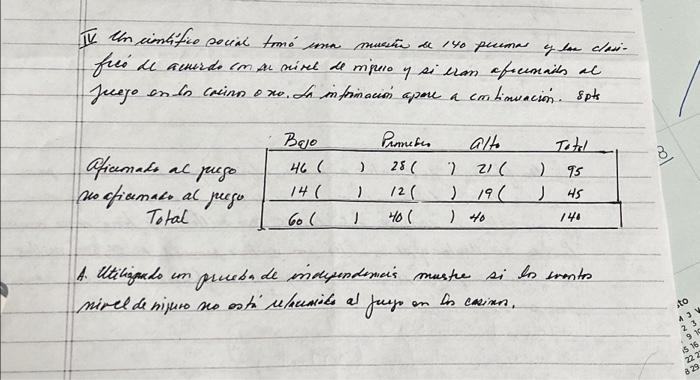 IV Un científico social tomó una muestra de 140 personas y las clasi-
ficó de acuerdo con su nivel de ingreso y si eran aficionados al
juego en los casinos o no. La información aparece a continuación. 8 pts
Bajo Promedio Alto Total
Aficionado al juego 46 ( ) 28 ( ) 21 ( ) 95
no aficionado al juego 14 ( ) 12 ( ) 19 ( ) 45
Total 60 ( ) 40 ( ) 40 140
A. Utilizando un prueba de independencia muestre si los eventos
nivel de ingreso no está relacionado al juego en los casinos.